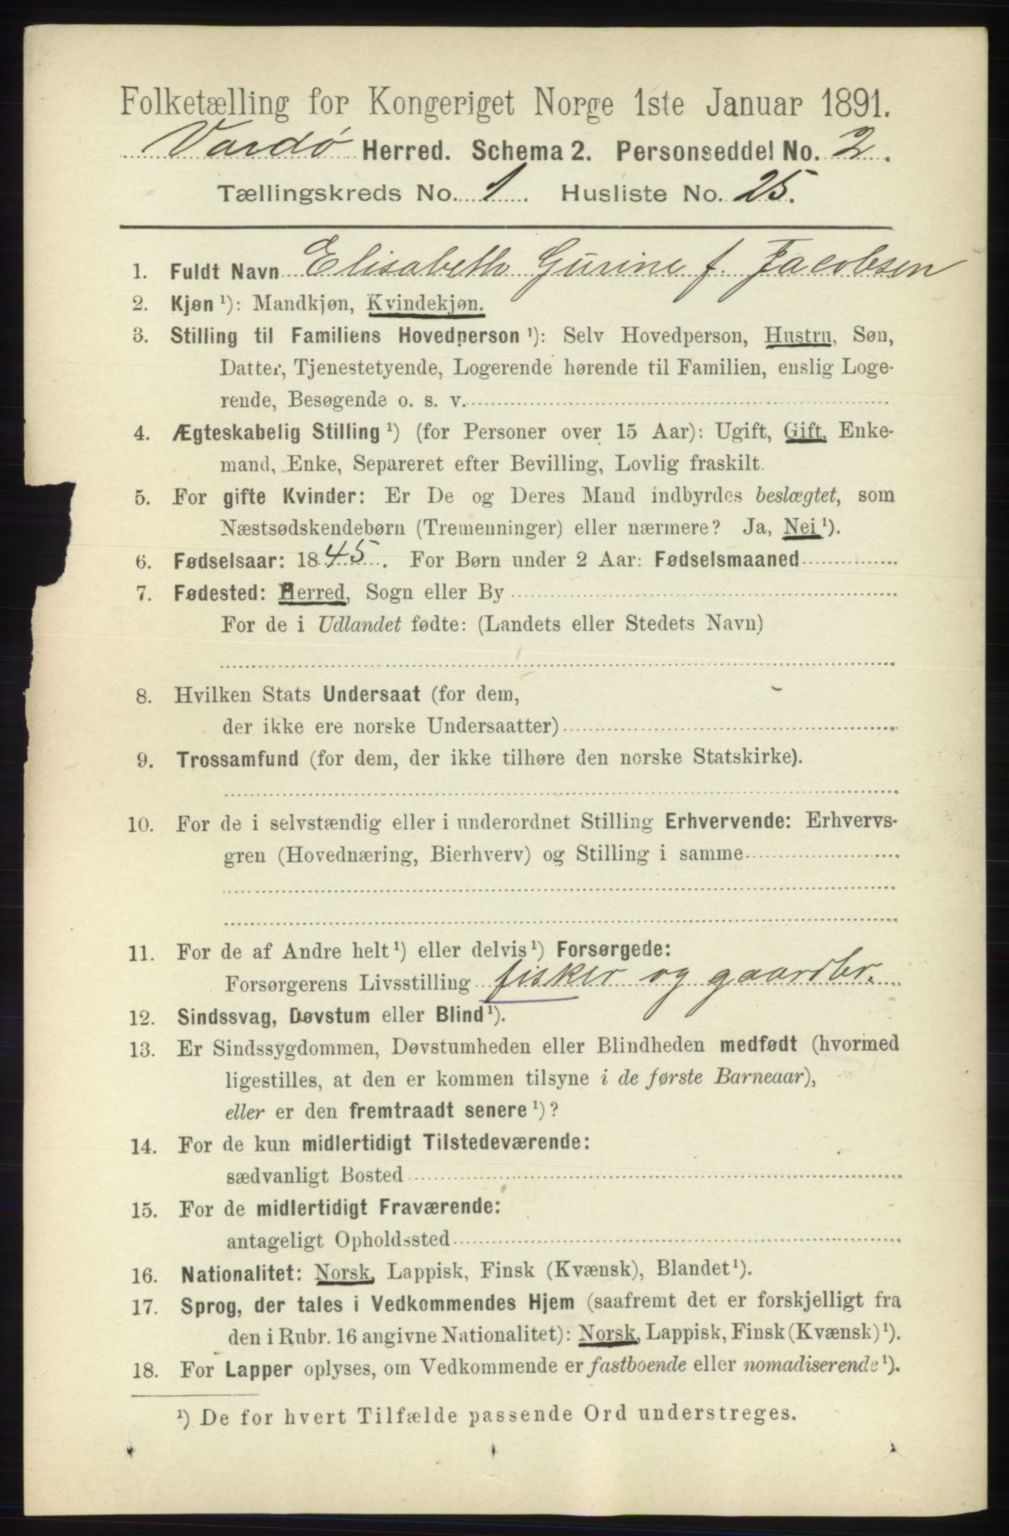 Folketælling for Kongeriget Norge 1ste Januar 1891.
Vardø Herred. Schema 2. Personseddel No. 2.
Tællingskreds No. 1. Husliste No. 25.
1. Fuldt Navn Elisabeth Gurine f. Jacobsen
2. Kjøn ¹): Mandkjøn, Kvindekjøn.
3. Stilling til Familiens Hovedperson ¹): Selv Hovedperson, Hustru, Søn,
Datter, Tjenestetyende, Logerende hørende til Familien, enslig Loge-
rende, Besøgende o. s. v.
4. Ægteskabelig Stilling ¹) (for Personer over 15 Aar): Ugift, Gift, Enke-
mand, Enke, Separeret efter Bevilling, Lovlig fraskilt.
5. For gifte Kvinder: Er De og Deres Mand indbyrdes beslægtet, som
Næstsødskendebørn (Tremenninger) eller nærmere? Ja, Nei ¹).
6. Fødselsaar: 1845. For Børn under 2 Aar: Fødselsmaaned
7. Fødested: Herred, Sogn eller By
For de i Udlandet fødte: (Landets eller Stedets Navn)
8. Hvilken Stats Undersaat (for dem,
der ikke ere norske Undersaatter)
9. Trossamfund (for dem, der ikke tilhøre den norske Statskirke).
10. For de i selvstændig eller i underordnet Stilling Erhvervende: Erhvervs-
gren (Hovednæring, Bierhverv) og Stilling i samme
11. For de af Andre helt ¹) eller delvis ¹) Forsørgede:
Forsørgerens Livsstilling fisker og gaardbr.
12. Sindssvag, Døvstum eller Blind ¹).
13. Er Sindssygdommen, Døvstumheden eller Blindheden medfødt (hvormed
ligestilles, at den er kommen tilsyne i de første Barneaar),
eller er den fremtraadt senere ¹)?
14. For de kun midlertidigt Tilstedeværende:
sædvanligt Bosted
15. For de midlertidigt Fraværende:
antageligt Opholdssted
16. Nationalitet: Norsk, Lappisk, Finsk (Kvænsk), Blandet ¹).
17. Sprog, der tales i Vedkommendes Hjem (saafremt det er forskjelligt fra
den i Rubr. 16 angivne Nationalitet): Norsk, Lappisk, Finsk (Kvænsk) ¹).
18. For Lapper oplyses, om Vedkommende er fastboende eller nomadiserende ¹).
¹) De for hvert Tilfælde passende Ord understreges.